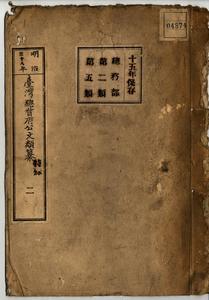 明治
三十九年
臺灣總督府公文類纂
二
十五年保存
總務部
第二類
第五類